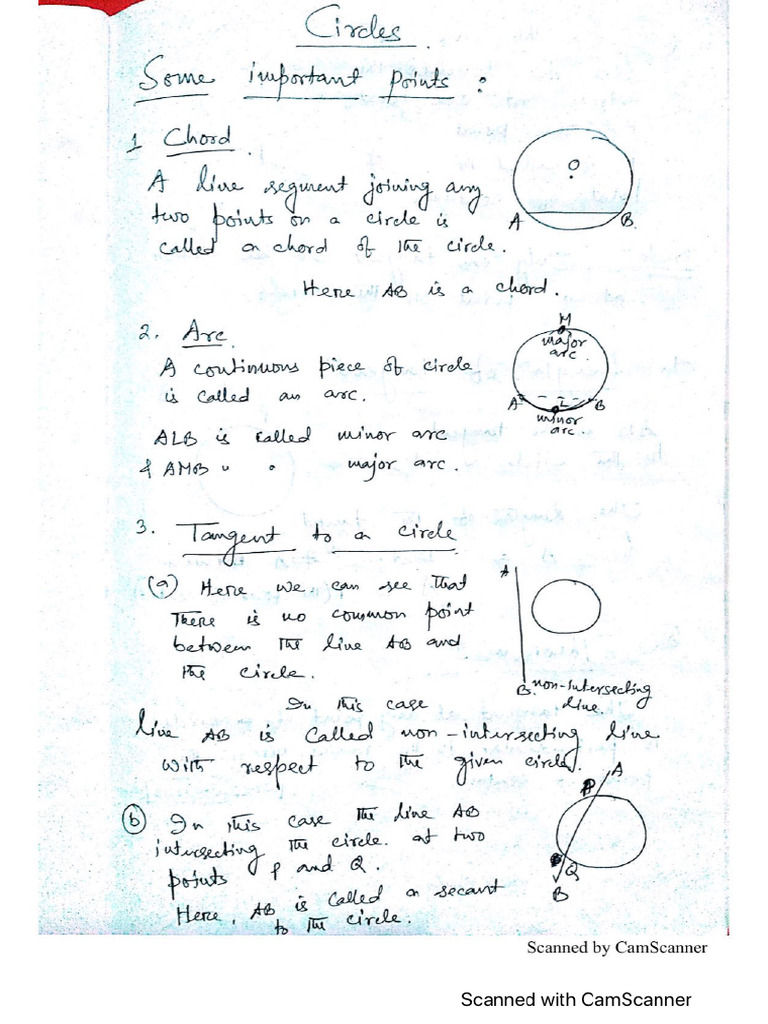 Circles
Some important points :
1 Chord
A line segment joining any
two points on a circle is
called a chord of the circle.
O
A B
Here AB is a chord.
2. Arc
A continuous piece of circle
is called an arc.
M
major
arc.
A L B
minor
arc.
ALB is called minor arc
& AMB " " major arc.
3. Tangent to a circle
(a) Here we can see that
there is no common point
between the line AB and
the circle.
A
B non-intersecting
line.
In this case
line AB is called non-intersecting line
with respect to the given circle.
(b) In this case the line AB
intersecting the circle. at two
points P and Q.
Here, AB is called a secant
to the circle.
A
P
Q
B
Scanned by CamScanner
Scanned with CamScanner